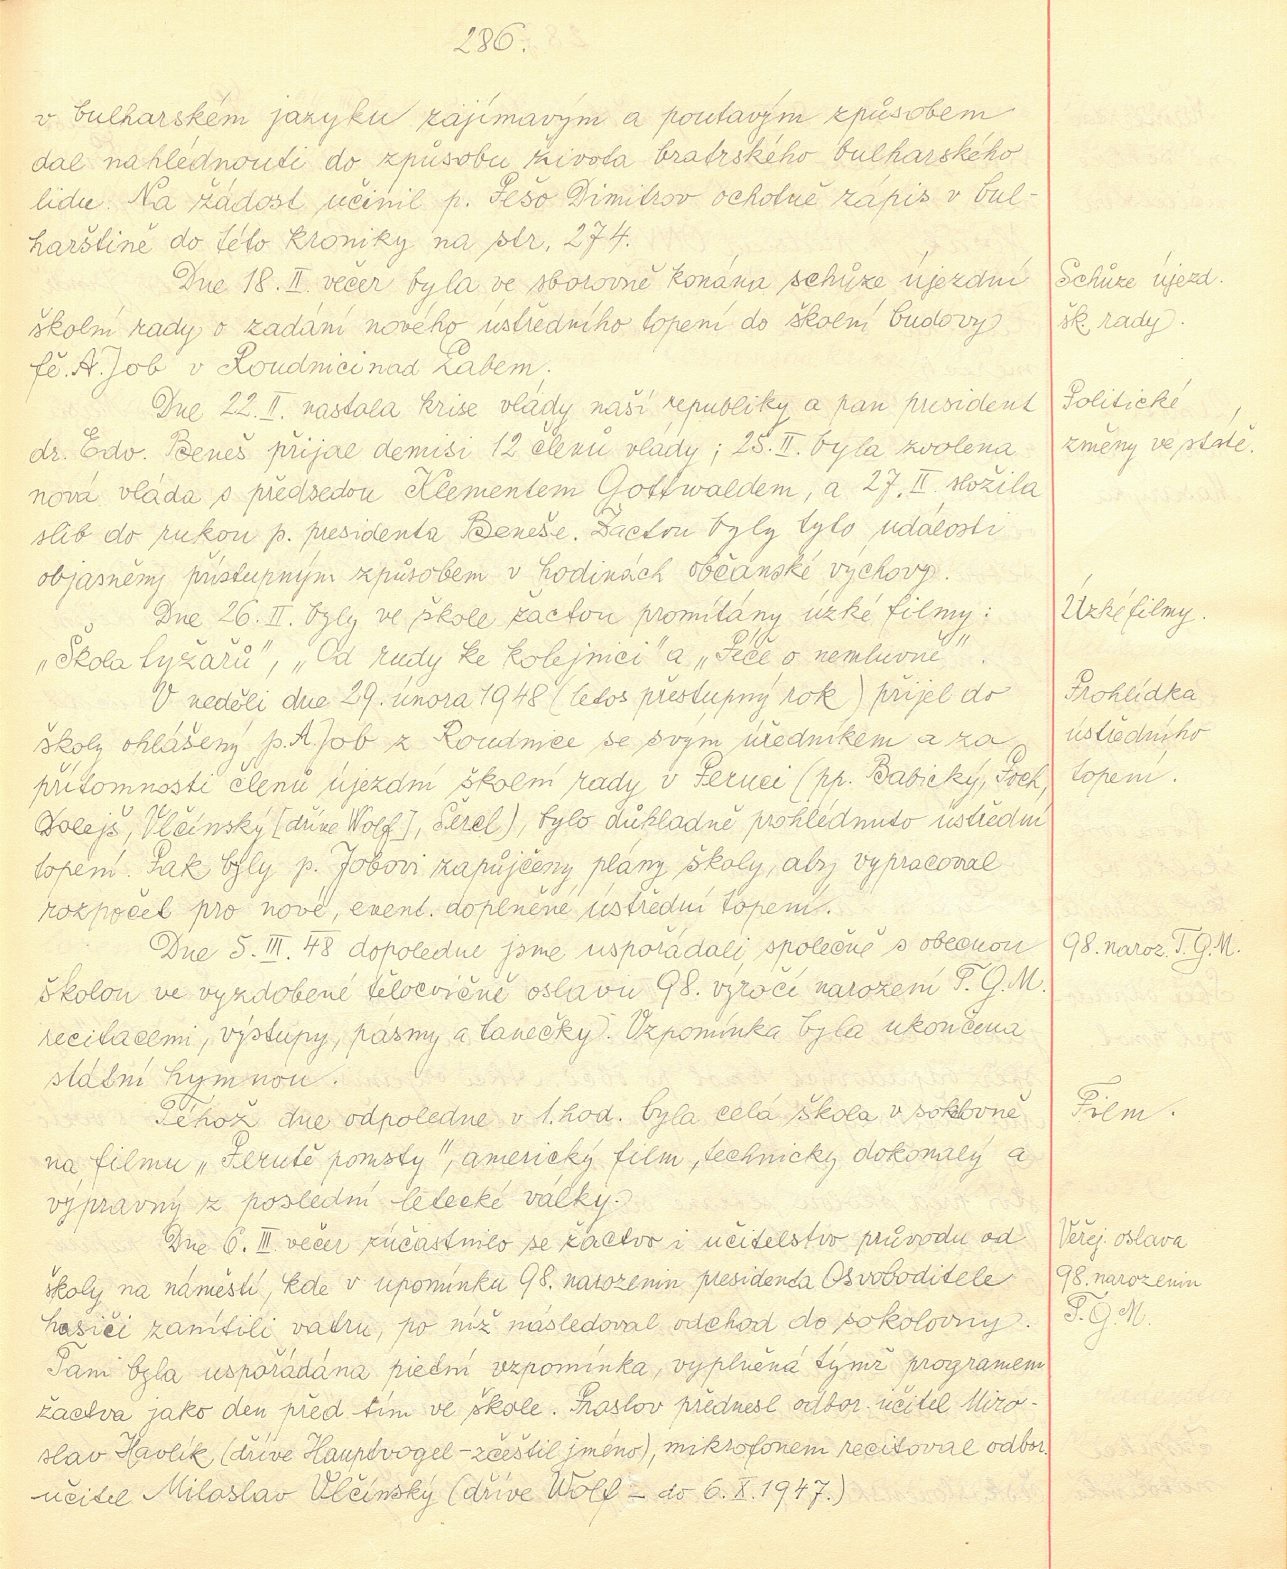 286.
v bulharském jazyku zajímavým a poutavým způsobem
dal nahlédnouti do způsobu života bratrského bulharského
lidu. Na žádost učinil p. Pešo Dimitrov ochotně zápis v bul-
harštině do této kroniky na str. 274.
Dne 18. II. večer byla ve sborovně konána schůze újezdní
školní rady o zadání nového ústředního topení do školní budovy
fě. A. Job v Roudnici nad Labem.
Schůze újezd.
šk. rady.
Dne 22. II. nastala krise vlády naší republiky a pan president
dr. Edv. Beneš přijal demisi 12 členů vlády; 25. II. byla zvolena
nová vláda s předsedou Klementem Gottwaldem, a 27. II. složila
slib do rukou p. presidenta Beneše. Žactvu byly tyto události
objasněny přístupným způsobem v hodinách občanské výchovy.
Politické
změny ve státě.
Dne 26. II. byly ve škole žactvu promítány úzké filmy:
„Škola lyžařů", „Od rudy ke kolejnici" a „Péče o nemluvně".
Úzké filmy.
V neděli dne 29. února 1948 (letos přestupný rok) přijel do
školy ohlášený p. A. Job z Roudnice se svým úředníkem a za
přítomnosti členů újezdní školní rady v Peruci (pp. Babický, Poch,
Dolejš, Vlčínský [dříve Wolf], Šercl), bylo důkladně prohlédnuto ústřední
topení. Pak byly p. Jobovi zapůjčeny plány školy, aby vypracoval
rozpočet pro nové, event. doplněné ústřední topení.
Prohlídka
ústředního
topení.
Dne 5. III. 48 dopoledne jsme uspořádali společně s obecnou
školou ve vyzdobené tělocvičně oslavu 98. výročí narození T. G. M.
recitacemi, výstupy, pásmy a tanečky. Vzpomínka byla ukončena
státní hymnou.
98. naroz. T. G. M.
Téhož dne odpoledne v 1. hod. byla celá škola v sokolovně
na filmu „Perutě pomsty", americký film, technicky dokonalý a
výpravný z poslední letecké války.
Film.
Dne 6. III. večer zúčastnilo se žactvo i učitelstvo průvodu od
školy na náměstí, kde v upomínku 98. narozenin presidenta Osvoboditele
hasiči zanítili vatru, po níž následoval odchod do sokolovny.
Tam byla uspořádána pietní vzpomínka, vyplněná týmž programem
žactva jako den před tím ve škole. Proslov přednesl odbor. učitel Miro-
slav Havlík (dříve Hauptvogel – zčeštil jméno), mikrofonem recitoval odbor.
učitel Miloslav Vlčínský (dříve Wolf – do 6. X. 1947.)
Veřej. oslava
98. narozenin
T. G. M.